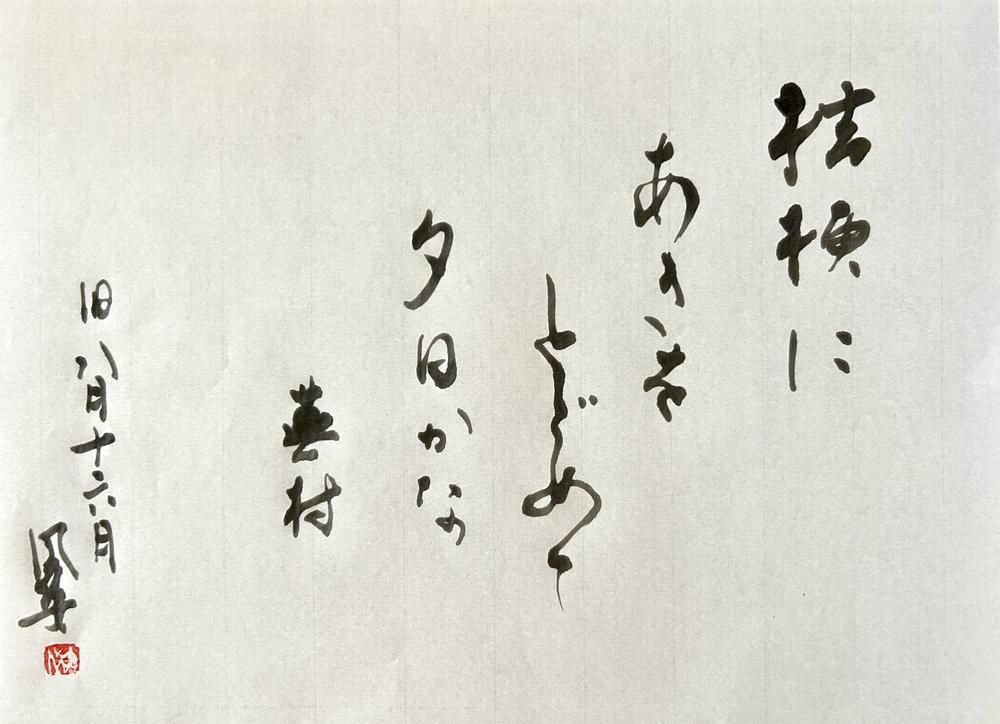 桔梗に
あきを
とどめて
夕日かな
蕪村
旧八月十六日